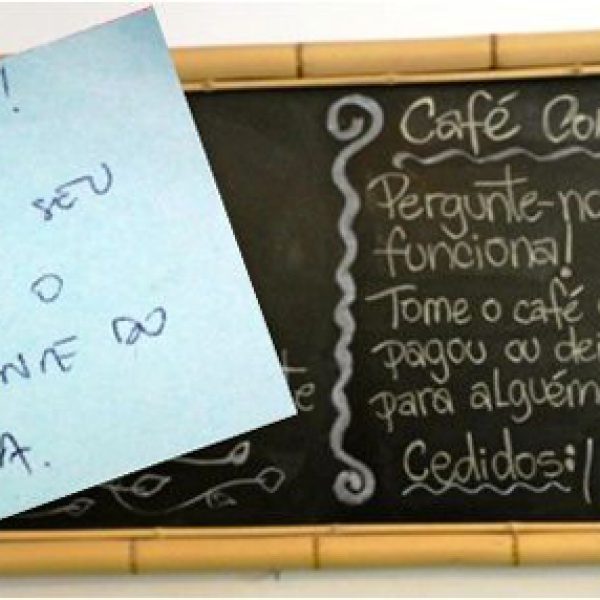 !
SEU
O
DO
A.
Café Con
Pergunte-no
funciona!
Tome o café
pagou ou dei
para alguém
Cedidos: